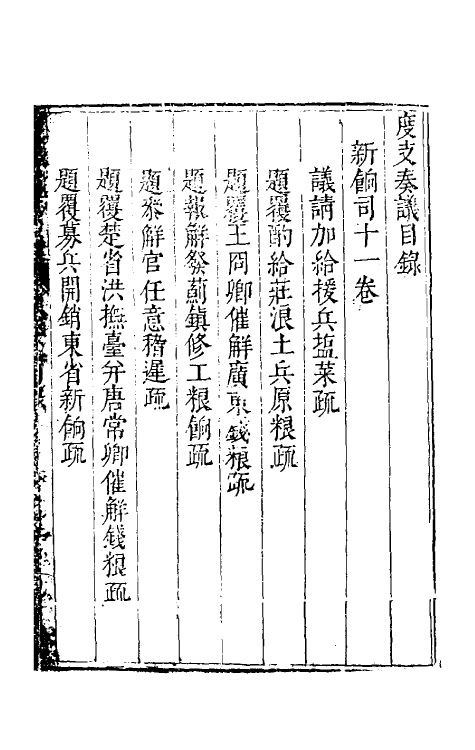 度支奏議目錄
新餉司十一卷
議請加給援兵塩菜疏
題覆酌給莊浪土兵原粮疏
題覆王冏卿催解廣東錢粮疏
題報解發薊鎮修工粮餉疏
題參解官任意稽遲疏
題覆楚省洪撫臺并唐常卿催解錢粮疏
題覆募兵開銷東省新餉疏